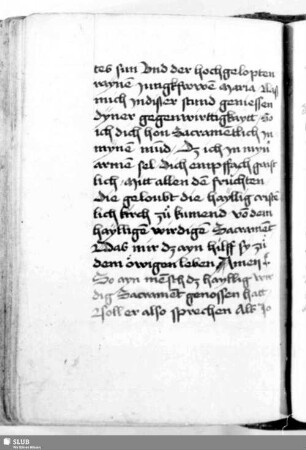 tes sun Vnd der hochgelopten
raynen Jungkfrwen maria Las
mich in diser stund geniessen
dyner gegenwirttigkaytt So
ich dich hon Sacramētlich in
mynē mūd Dz ich in mynr
armen sel Dich empffach gaist
lich Mitt allen den früchten
Die geloubt die hayllig cristen
lich kirch zū kumend von dem
hayligen wirdigen Sacramēt
Das mir dz ayn hilff sy zū
dem öwigen leben Amen
So ayn mensch dz hayllig wir
dig Sacramēt genossen hatt
Soll er also sprechen Als Jo
SLUB